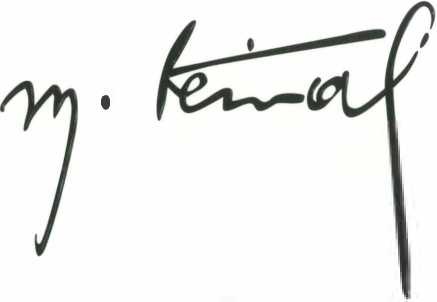 M. Kemal